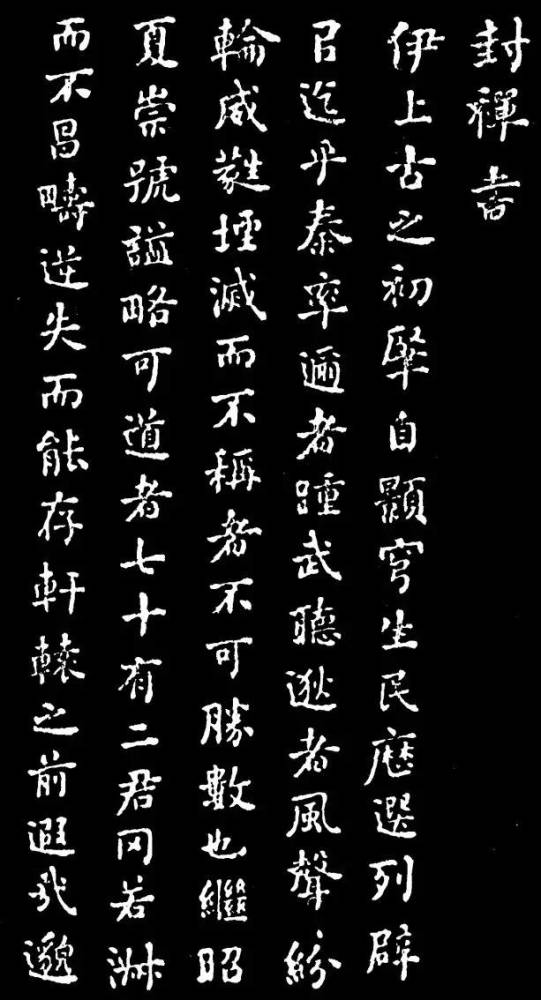 封禪書
伊上古之初肇自顥穹生民歷選列辟
㠯迄乎秦率邇者踵武聽逖者風聲紛
輪威蕤堙滅而不稱者不可勝數也繼昭
夏崇號諡略可道者七十有二君罔若淋
而不昌疇逆失而能存軒轅之前遐哉邈